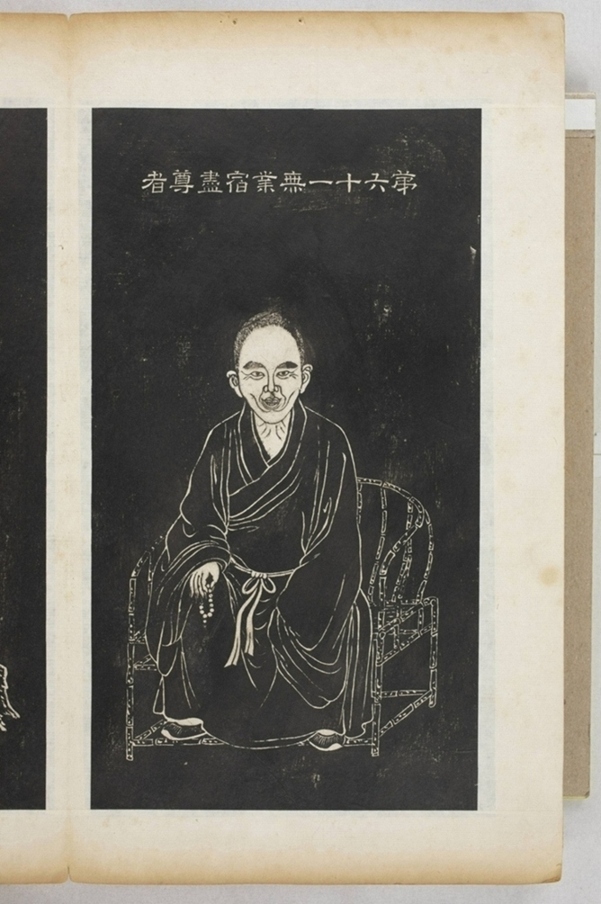 第六十一無業宿盡尊者